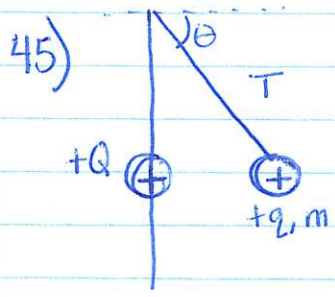 45)
θ
T
+Q
+
+
+q, m